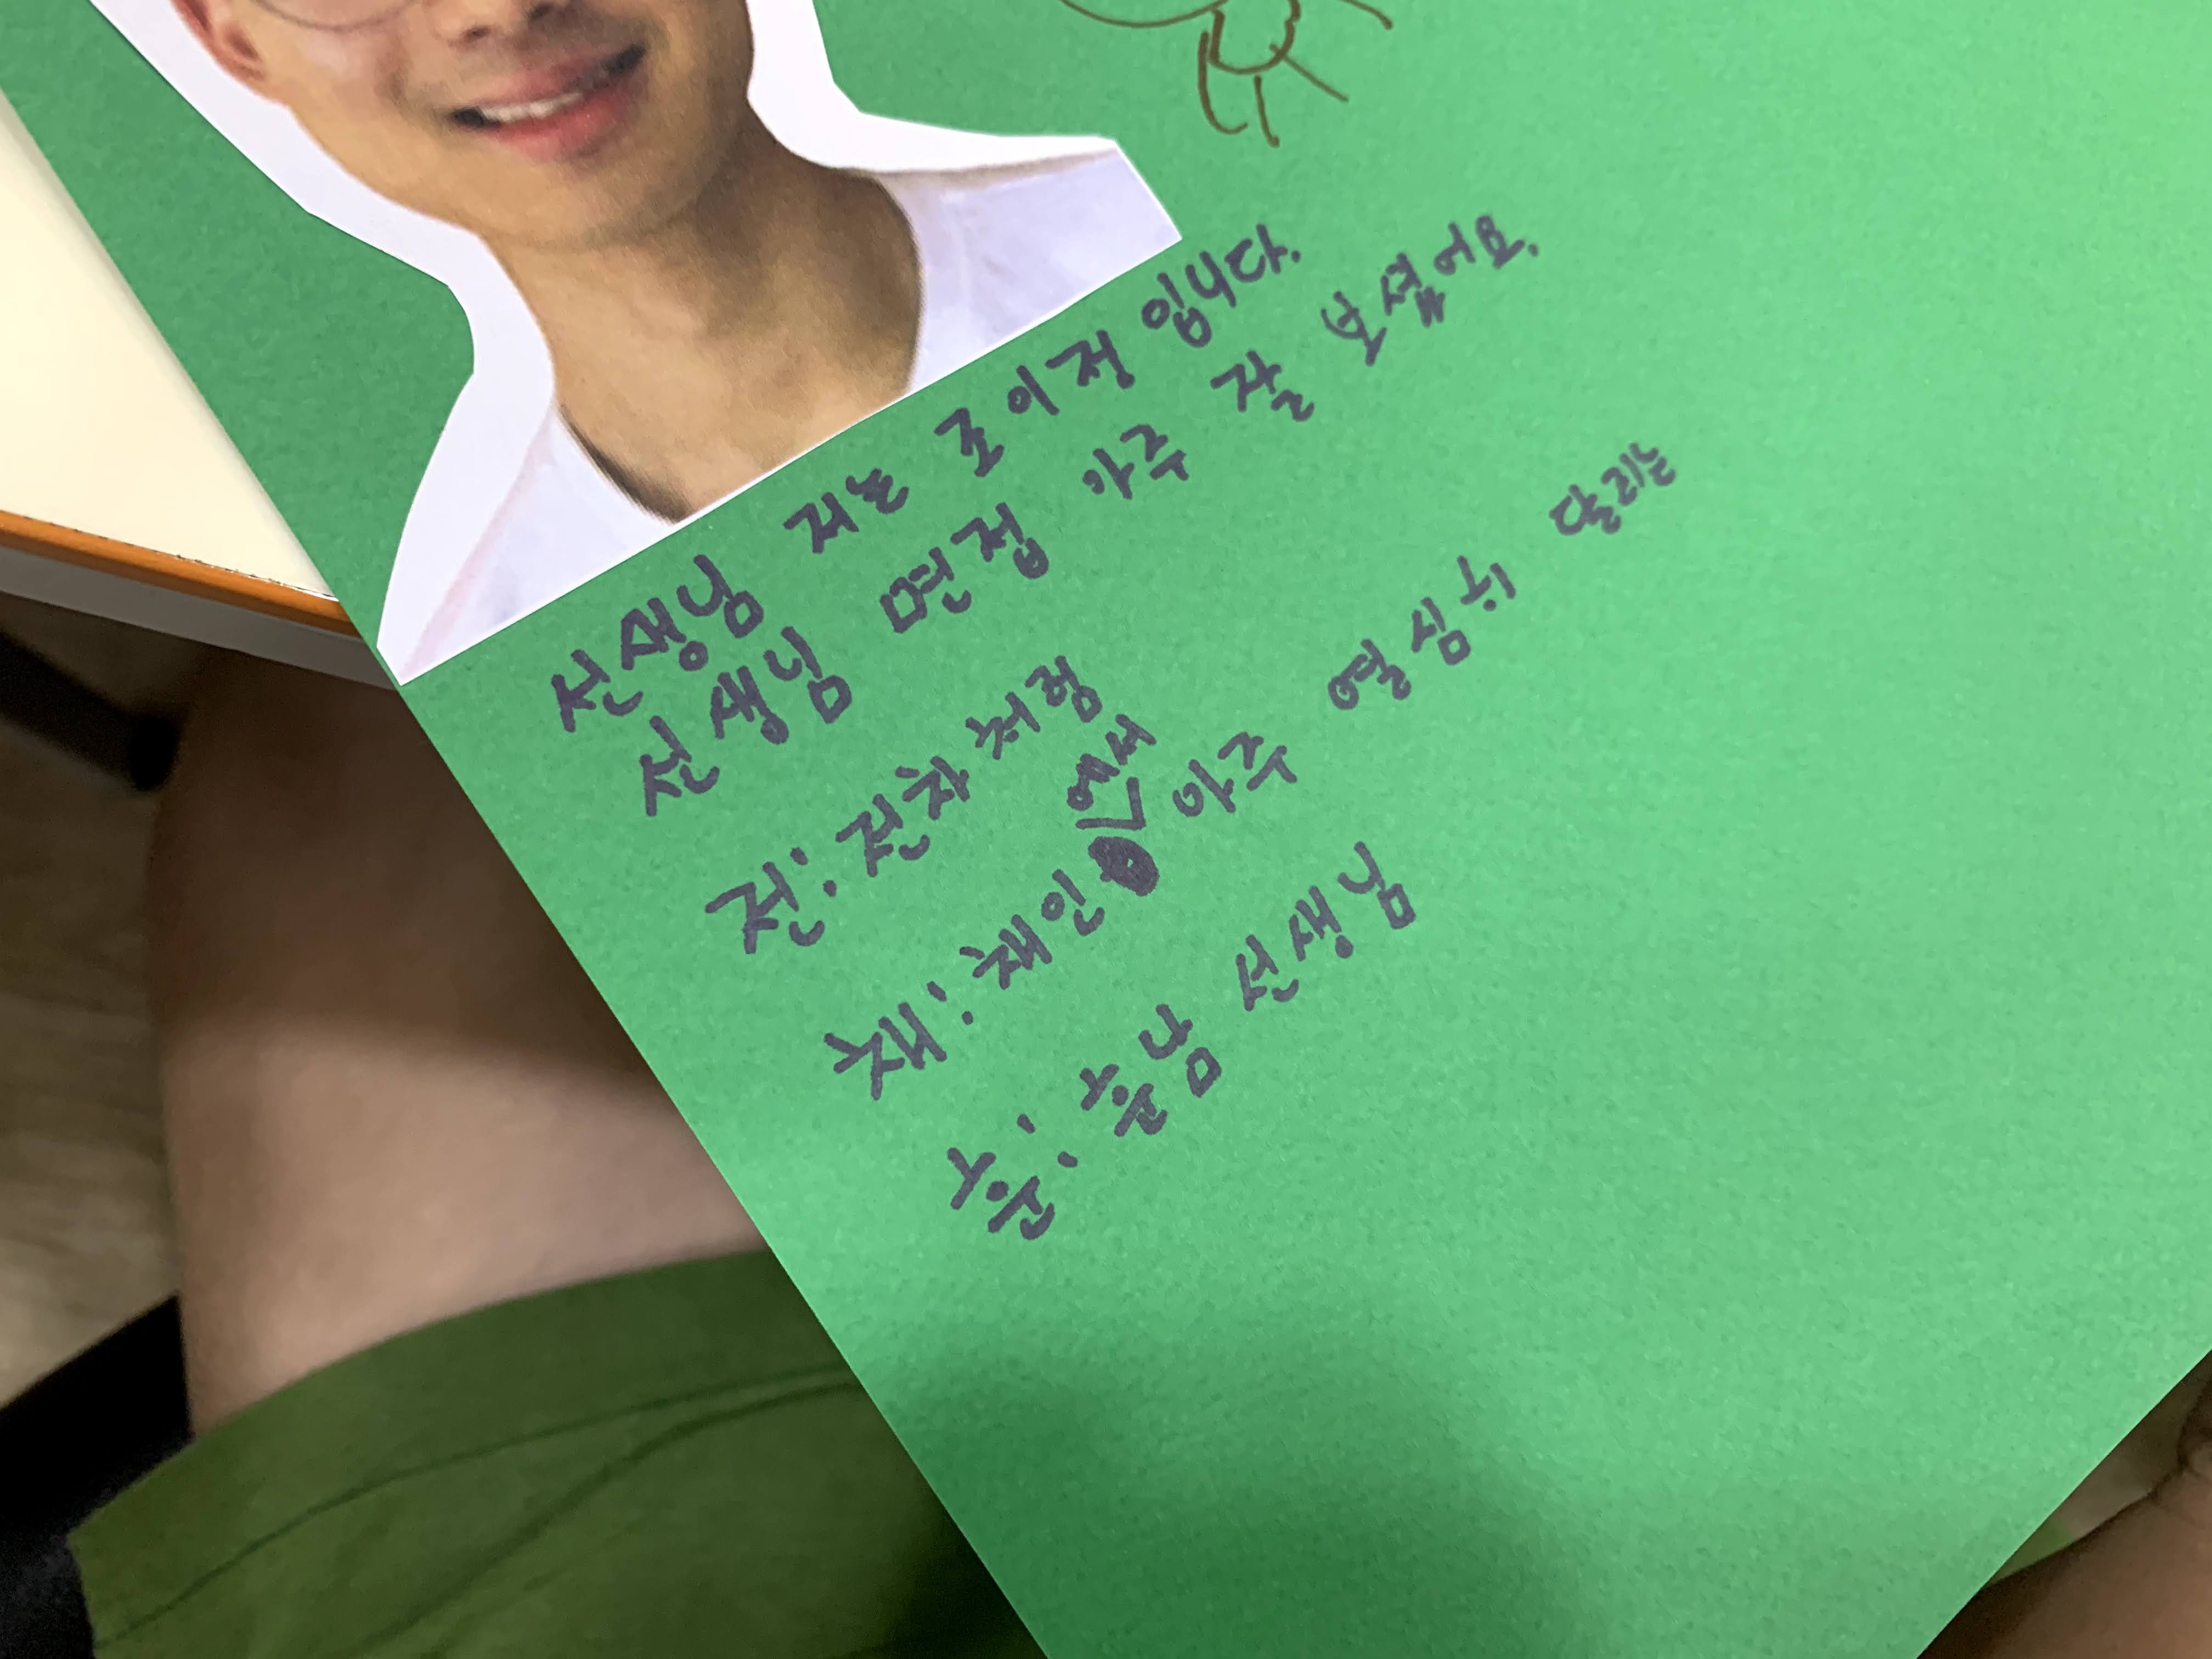 선생님 저는 조이정 입니다.
선생님 면접 아주 잘 보셨어요.
전: 전차 처렁
채: 채인에서 아주 열심히 달리는
훈: 훈남 선생님